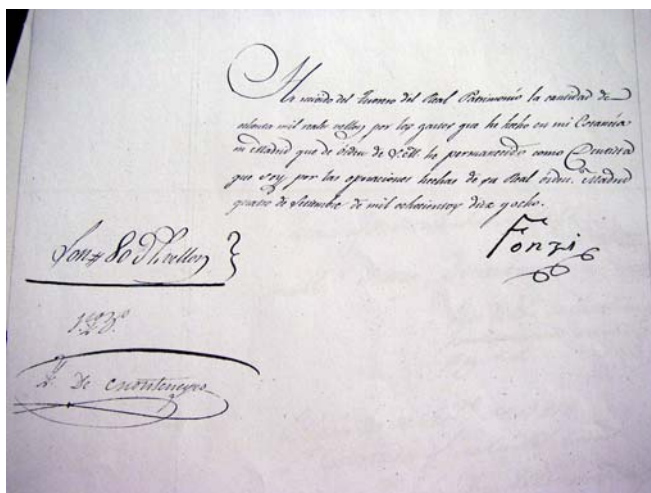 Ha recivido del Tesorero del Real Patrimonio la cantidad de
ochenta mil reales vellon, por los gastos que he hecho en mi Estancia
en Madrid que de órden de S.M. ha permanecido como Dentista
que soy por las operaciones hechas de su Real órden. Madrid
quatro de Setiembre de mil ochocientos diez y ocho.
Fonzi
Son 80 vellon
De Montenegro